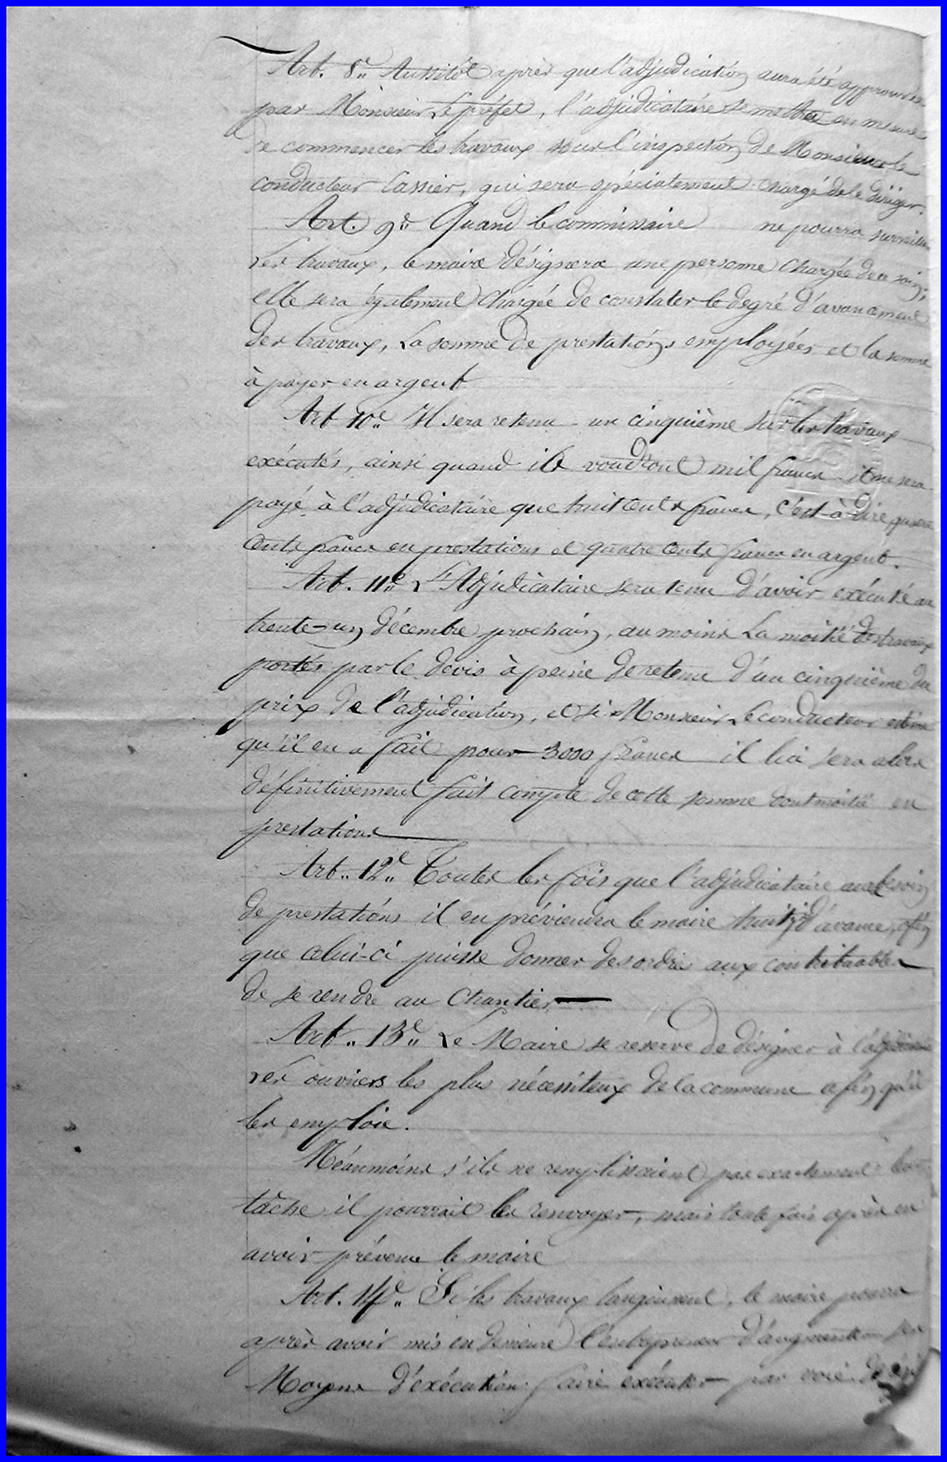 Art. 8e. Aussitôt après que l'adjudication aura été approuvée
par Monsieur Le préfet, l'adjudicataire se mettra en mesure
de commencer les travaux sous l'inspection de Monsieur le
conducteur Cassier, qui sera spécialement chargé de le diriger.
Art. 9e Quand le commissaire ne pourra surveiller
les travaux, le maire désignera une personne chargée de ce soin;
elle sera également chargée de constater le degré d'avancement
des travaux, La somme de prestations employées et la somme
à payer en argent
Art 10e Il sera retenu un cinquième sur les travaux
exécutés, ainsi quand ils voudront mil francs il ne sera
payé à l'adjudicataire que huit cents francs, c'est à dire quatre
cents francs en prestations et quatre cents francs en argent.
Art. 11e L'Adjudicataire sera tenu d'avoir exécuté au
trente-un décembre prochain, au moins La moitié des travaux
portés par le devis à peine de retenu d'un cinquième du
prix de l'adjudication, et si Monsieur Le conducteur estime
qu'il en a fait pour 3000 francs il lui sera alors
définitivement fait compte de cette somme dont moitié en
prestations
Art. 12e. Toutes les fois que l'adjudicataire aura besoin
de prestations il en préviendra le maire huit j. d'avance, afin
que celui-ci puisse donner des ordres aux contribuables
de se rendre au Chantier
Art. 13e. Le Maire se reserve de désigner à
les ouvriers les plus nécessiteux de la commune afin qu'il
les emploie.
Néanmoins s'ils ne remplissaient pas exactement leur
tâche il pourrait les renvoyer, mais toute fois après en
avoir prévenu le maire
Art. 14e. Si les travaux languissent, le maire pourra
après avoir mis en demeure l'entrepreneur d'augmenter ses
Moyens d'exécution faire exécuter par voie de